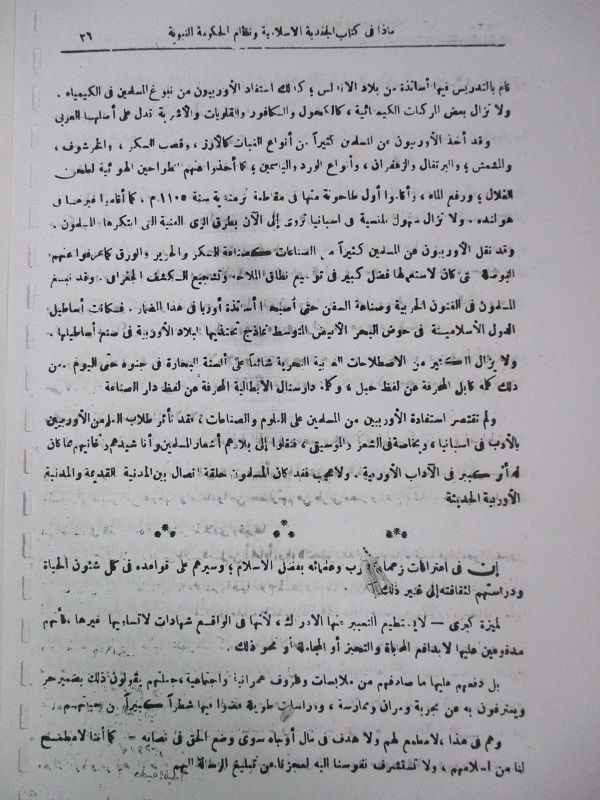 ماذا فى كتاب الجندية الاسلامية ونظام الحكومة النبوية ٣٦
قام بالتدريس فيها أساتذة من بلاد الاندلس ؛ كذلك استفاد الأوربيون من نبوغ المسلمين فى الكيمياء .
ولا تزال بعض المركبات الكيمائية ، كالكحول والكافور والقلويات والأشربة تدل على أصلها العربى
وقد أخذ الأوربيون عن المسلمين كثيراً من أنواع النبات كالأرز ، وقصب السكر ، والخرشوف ،
والمشمش ؛ والبرتقال والزعفران ، وأنواع الورد والياسمين ؛ كما أخذوا عنهم الطواحين الهوائية لطحن
الغلال ؛ ورفع الماء ، وأقاموا أول طاحونة منها فى مقاطعة نرمندية سنة ١١٠٥ م . كما أقاموا غيرها فى
هولنده . ولا تزال سهول بلنسية فى اسبانيا تروى إلى الآن بطرق الرى الفنية التى ابتكرها المسلمون .
وقد نقل الأوربيون عن المسلمين كثيراً من الصناعات كصناعة السكر والحرير والورق كما عرفوا عنهم
البوصلة التى كان لاستعمالها فضل كبير فى توسيع نطاق الملاحة وتشجيع الكشف الجغرافى . وقد نبغ
المسلمون فى الفنون الحربية وصناعة السفن حتى أصبحوا أساتذة أوربا فى هذا المضمار . فكانت أساطيل
الدول الأسلامية فى حوض البحر الأبيض المتوسط نماذج تحتذيها البلاد الأوربية فى صنع أساطيلها .
ولا يزال الكثير من الاصطلاحات الفنية البحرية شائعاً على ألسنة البحارة فى جنوه حتى اليوم . من
ذلك كلمة كابل المحرفة عن لفظ حبل ، وكلمة دارسنال الايطالية المحرفة عن لفظ دار الصناعة
ولم تقتصر استفادة الأوربين من المسلمين على العلوم والصناعات ؛ فقد تأثر طلاب العلم من الأوربيين
بالأدب فى اسبانيا ، وبخاصة فى الشعر والموسيقى ، فنقلوا إلى بلادهم أشعار المسلمين وأناشيدهم وأغانيهم مما كان
له أثر كبير فى الآداب الأوربية . ولا عجب فقد كان المسلمون حلقة اتصال بين المدنية القديمة والمدنية
الأوربية الحديثة
*** *** ***
إن فى اعترافات زعماء وعلمائه بفضل الاسلام ؛ وسيرهم على قواعده فى كل شئون الحياة
ودراستهم لثقافته إلى غير ذلك
لميزة كبرى — لا يستطيع التعبير عنها الادراك ، لأنها فى الواقع شهادات لا تساويها غيرها ، فأنهم
مدفوعين عليها لا بدافع المحاباة والتحيز أو المجاملة أو نحو ذلك .
بل دفعهم عليها ما صادفهم من ملابسات وظروف عمرانية واجتماعية ، جعلتهم يقولون ذلك بضمير حر
ويعترفون به عن تجربة ومران وممارسة ، ودراسات طويلة قضوا فيها شطراً كبيراً من حياتهم .
وهم فى هذا ، لا مطمع لهم ولا هدف فى مال أو جاه سوى وضع الحق فى نصابه — كما أننا لا مطمع
لنا من اسلامهم ، ولا تستشرف نفوسنا اليه لعجزنا عن تبليغ الرسالة اليهم